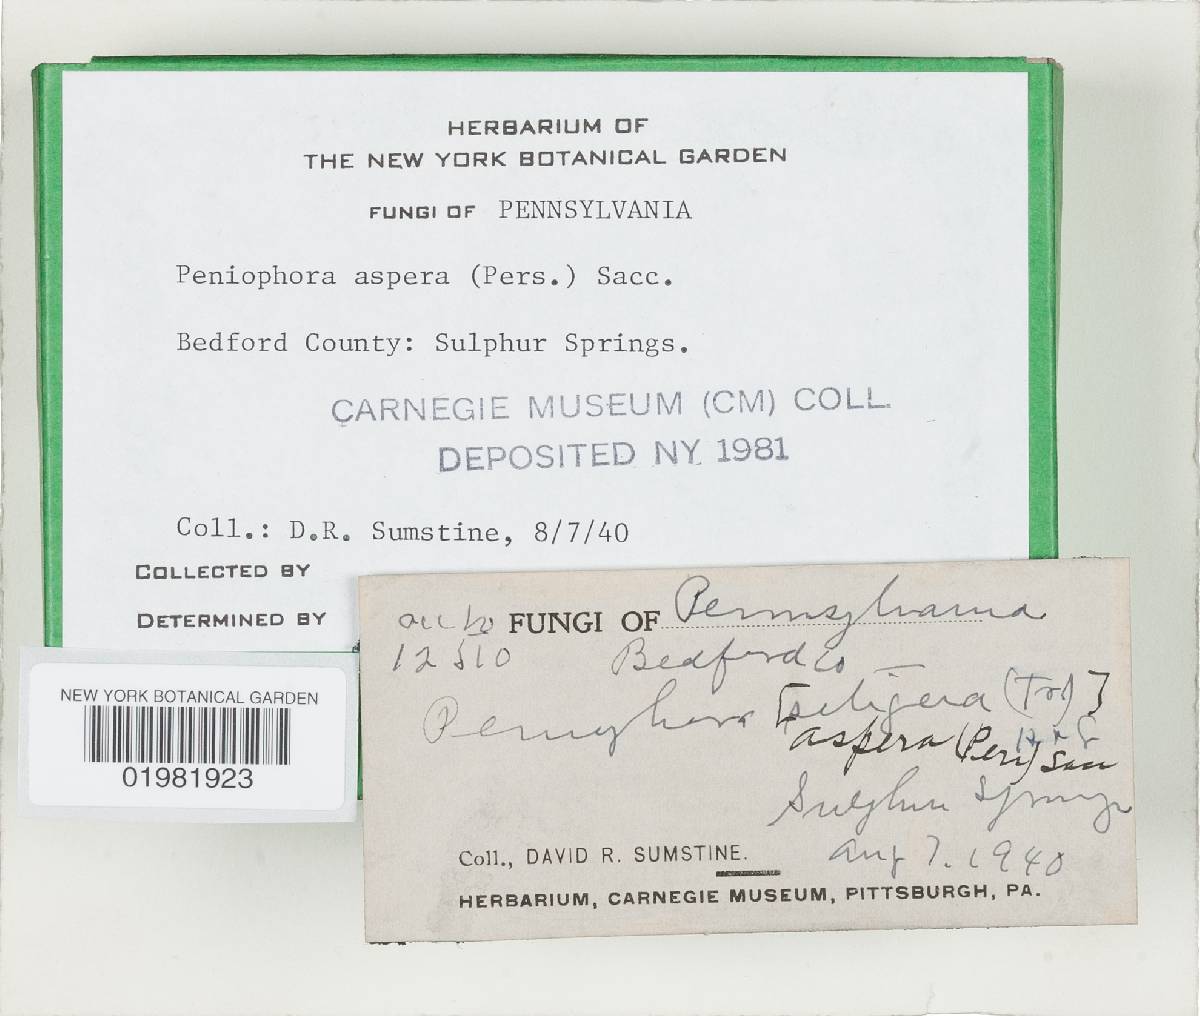 HERBARIUM OF
THE NEW YORK BOTANICAL GARDEN
FUNGI OF PENNSYLVANIA
Peniophora aspera (Pers.) Sacc.
Bedford County: Sulphur Springs.
CARNEGIE MUSEUM (CM) COLL.
DEPOSITED NY 1981
Coll.: D.R. Sumstine, 8/7/40
COLLECTED BY
DETERMINED BY
NEW YORK BOTANICAL GARDEN
01981923
FUNGI OF Pennsylvania
12510 Bedford Co
Peniophora [setigera (Fr)]
H & L
aspera (Pers) Sacc
Sulphur Springs
Aug 7. 1940
Coll., DAVID R. SUMSTINE.
HERBARIUM, CARNEGIE MUSEUM, PITTSBURGH, PA.